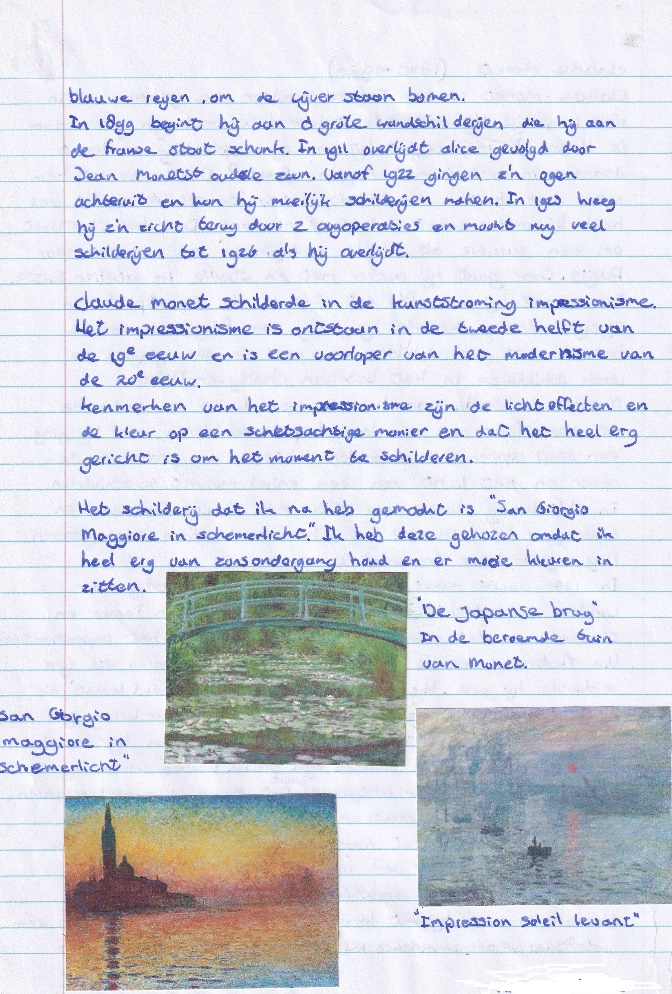 blauwe regen, om de vijver staan bomen.
In 1899 begint hij aan 8 grote wandschilderijen die hij aan
de franse staat schonk. In 1911 overlijdt alice gevolgd door
Jean Monetst oudste zoon. Vanaf 1922 gingen z'n ogen
achteruit en kon hij moeilijk schilderijen maken. In 1923 kreeg
hij z'n zicht terug door 2 oogoperaties en maakt nog veel
schilderijen tot 1926 als hij overlijdt.
claude monet schilderde in de kunststroming impressionisme.
Het impressionisme is ontstaan in de tweede helft van
de 19e eeuw en is een voorloper van het modernisme van
de 20e eeuw.
kenmerken van het impressionisme zijn de lichteffecten en
de kleur op een schetsachtige manier en dat het heel erg
gericht is om het moment te schilderen.
Het schilderij dat ik na heb gemaakt is "San Giorgio
Maggiore in schemerlicht." Ik heb deze gekozen omdat ik
heel erg van zonsondergang houd en er mooie kleuren in
zitten.
"De Japanse brug"
In de beroemde tuin
van Monet.
San Giorgio
maggiore in
schemerlicht"
"Impression soleil levant"